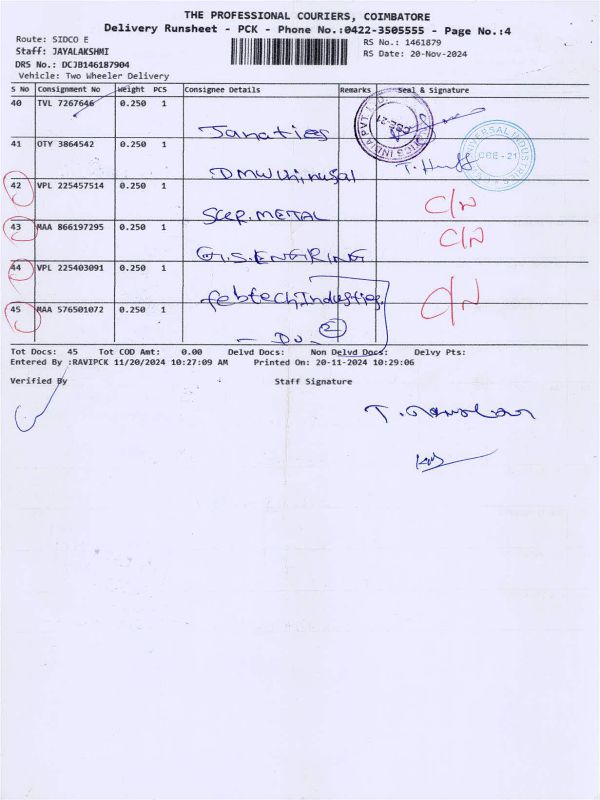 THE PROFESSIONAL COURIERS, COIMBATORE
Delivery Runsheet - PCK - Phone No.:0422-3505555 - Page No.:4
Route: SIDCO E
RS No.: 1461879
Staff: JAYALAKSHMI
RS Date: 20-Nov-2024
DRS No.: DCJB146187904
Vehicle: Two Wheeler Delivery
S No Consignment No Weight PCS Consignee Details Remarks Seal & Signature
40 TVL 7267646 0.250 1
41 OTY 3864542 0.250 1
CBE - 21
42 VPL 225457514 0.250 1 C/N
METAL
43 MAA 866197295 0.250 1 C/N
G.S.
44 VPL 225403091 0.250 1 C/N
febtech Industies
45 MAA 576501072 0.250 1
- Do - 2
Tot Docs: 45 Tot COD Amt: 0.00 Delvd Docs: Non Delvd Docs: Delvy Pts:
Entered By :RAVIPCK 11/20/2024 10:27:09 AM Printed On: 20-11-2024 10:29:06
Verified By Staff Signature